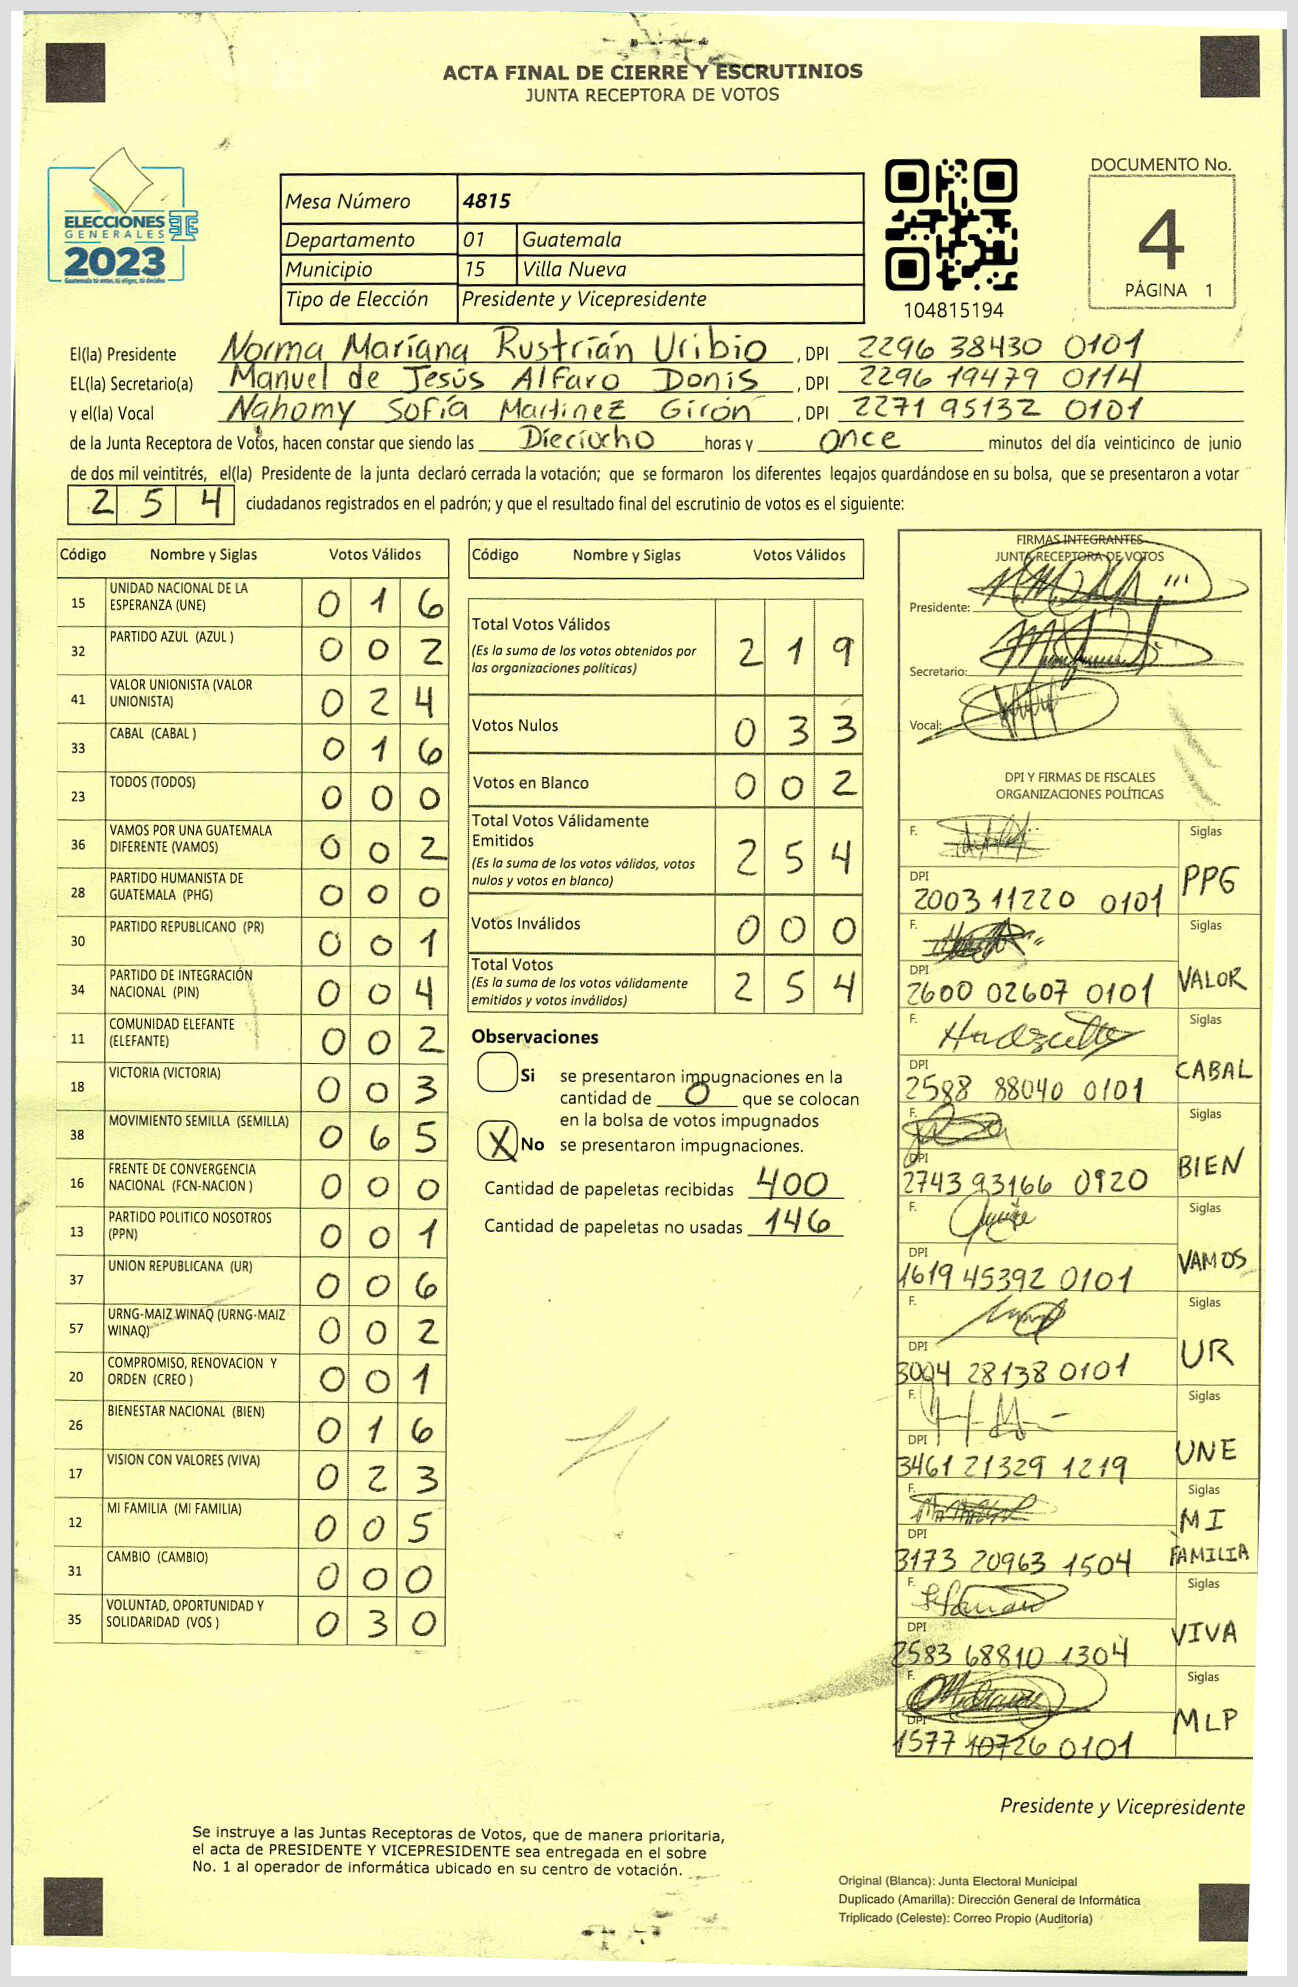 ACTA FINAL DE CIERRE Y ESCRUTINIOS
JUNTA RECEPTORA DE VOTOS
ELECCIONES
GENERALES
2023
Guatemala tú eres, tú eliges, tú decides
Mesa Número 4815
Departamento 01 Guatemala
Municipio 15 Villa Nueva
Tipo de Elección Presidente y Vicepresidente
104815194
DOCUMENTO No.
4
PÁGINA 1
El(la) Presidente Norma Mariana Rustrián Uribio , DPI 2296 38430 0101
EL(la) Secretario(a) Manuel de Jesús Alfaro Donis , DPI 2296 19479 0114
y el(la) Vocal Nahomy Sofía Martinez Girón , DPI 2271 95132 0101
de la Junta Receptora de Votos, hacen constar que siendo las Dieciocho horas y once minutos del día veinticinco de junio
de dos mil veintitrés, el(la) Presidente de la junta declaró cerrada la votación; que se formaron los diferentes legajos guardándose en su bolsa, que se presentaron a votar
254 ciudadanos registrados en el padrón; y que el resultado final del escrutinio de votos es el siguiente:
Código Nombre y Siglas Votos Válidos
15 UNIDAD NACIONAL DE LA ESPERANZA (UNE) 016
32 PARTIDO AZUL (AZUL ) 002
41 VALOR UNIONISTA (VALOR UNIONISTA) 024
33 CABAL (CABAL ) 016
23 TODOS (TODOS) 000
36 VAMOS POR UNA GUATEMALA DIFERENTE (VAMOS) 002
28 PARTIDO HUMANISTA DE GUATEMALA (PHG) 000
30 PARTIDO REPUBLICANO (PR) 001
34 PARTIDO DE INTEGRACIÓN NACIONAL (PIN) 004
11 COMUNIDAD ELEFANTE (ELEFANTE) 002
18 VICTORIA (VICTORIA) 003
38 MOVIMIENTO SEMILLA (SEMILLA) 065
16 FRENTE DE CONVERGENCIA NACIONAL (FCN-NACION ) 000
13 PARTIDO POLITICO NOSOTROS (PPN) 001
37 UNION REPUBLICANA (UR) 006
57 URNG-MAIZ WINAQ (URNG-MAIZ WINAQ) 002
20 COMPROMISO, RENOVACION Y ORDEN (CREO ) 001
26 BIENESTAR NACIONAL (BIEN) 016
17 VISION CON VALORES (VIVA) 023
12 MI FAMILIA (MI FAMILIA) 005
31 CAMBIO (CAMBIO) 000
35 VOLUNTAD, OPORTUNIDAD Y SOLIDARIDAD (VOS ) 030
Código Nombre y Siglas Votos Válidos
Total Votos Válidos 219
(Es la suma de los votos obtenidos por
las organizaciones políticas)
Votos Nulos 033
Votos en Blanco 002
Total Votos Válidamente
Emitidos 254
(Es la suma de los votos válidos, votos
nulos y votos en blanco)
Votos Inválidos 000
Total Votos 254
(Es la suma de los votos válidamente
emitidos y votos inválidos)
Observaciones
Si se presentaron impugnaciones en la
cantidad de 0 que se colocan
en la bolsa de votos impugnados
X No se presentaron impugnaciones.
Cantidad de papeletas recibidas 400
Cantidad de papeletas no usadas 146
FIRMAS INTEGRANTES
JUNTA RECEPTORA DE VOTOS
Presidente:
Secretario:
Vocal:
DPI Y FIRMAS DE FISCALES
ORGANIZACIONES POLÍTICAS
F. Siglas
DPI PPG
2003 11220 0101
F. Siglas
DPI VALOR
2600 02607 0101
F. Siglas
DPI CABAL
2588 88040 0101
F. Siglas
DPI BIEN
2743 93166 0920
F. Siglas
DPI VAMOS
1619 45392 0101
F. Siglas
DPI UR
3004 28138 0101
F. Siglas
DPI UNE
3461 21329 1219
F. Siglas
DPI MI FAMILIA
3173 20963 1504
F. Siglas
DPI VIVA
2583 68810 1304
F. Siglas
DPI MLP
1577 10726 0101
Presidente y Vicepresidente
Se instruye a las Juntas Receptoras de Votos, que de manera prioritaria,
el acta de PRESIDENTE Y VICEPRESIDENTE sea entregada en el sobre
No. 1 al operador de informática ubicado en su centro de votación.
Original (Blanca): Junta Electoral Municipal
Duplicado (Amarilla): Dirección General de Informática
Triplicado (Celeste): Correo Propio (Auditoría)